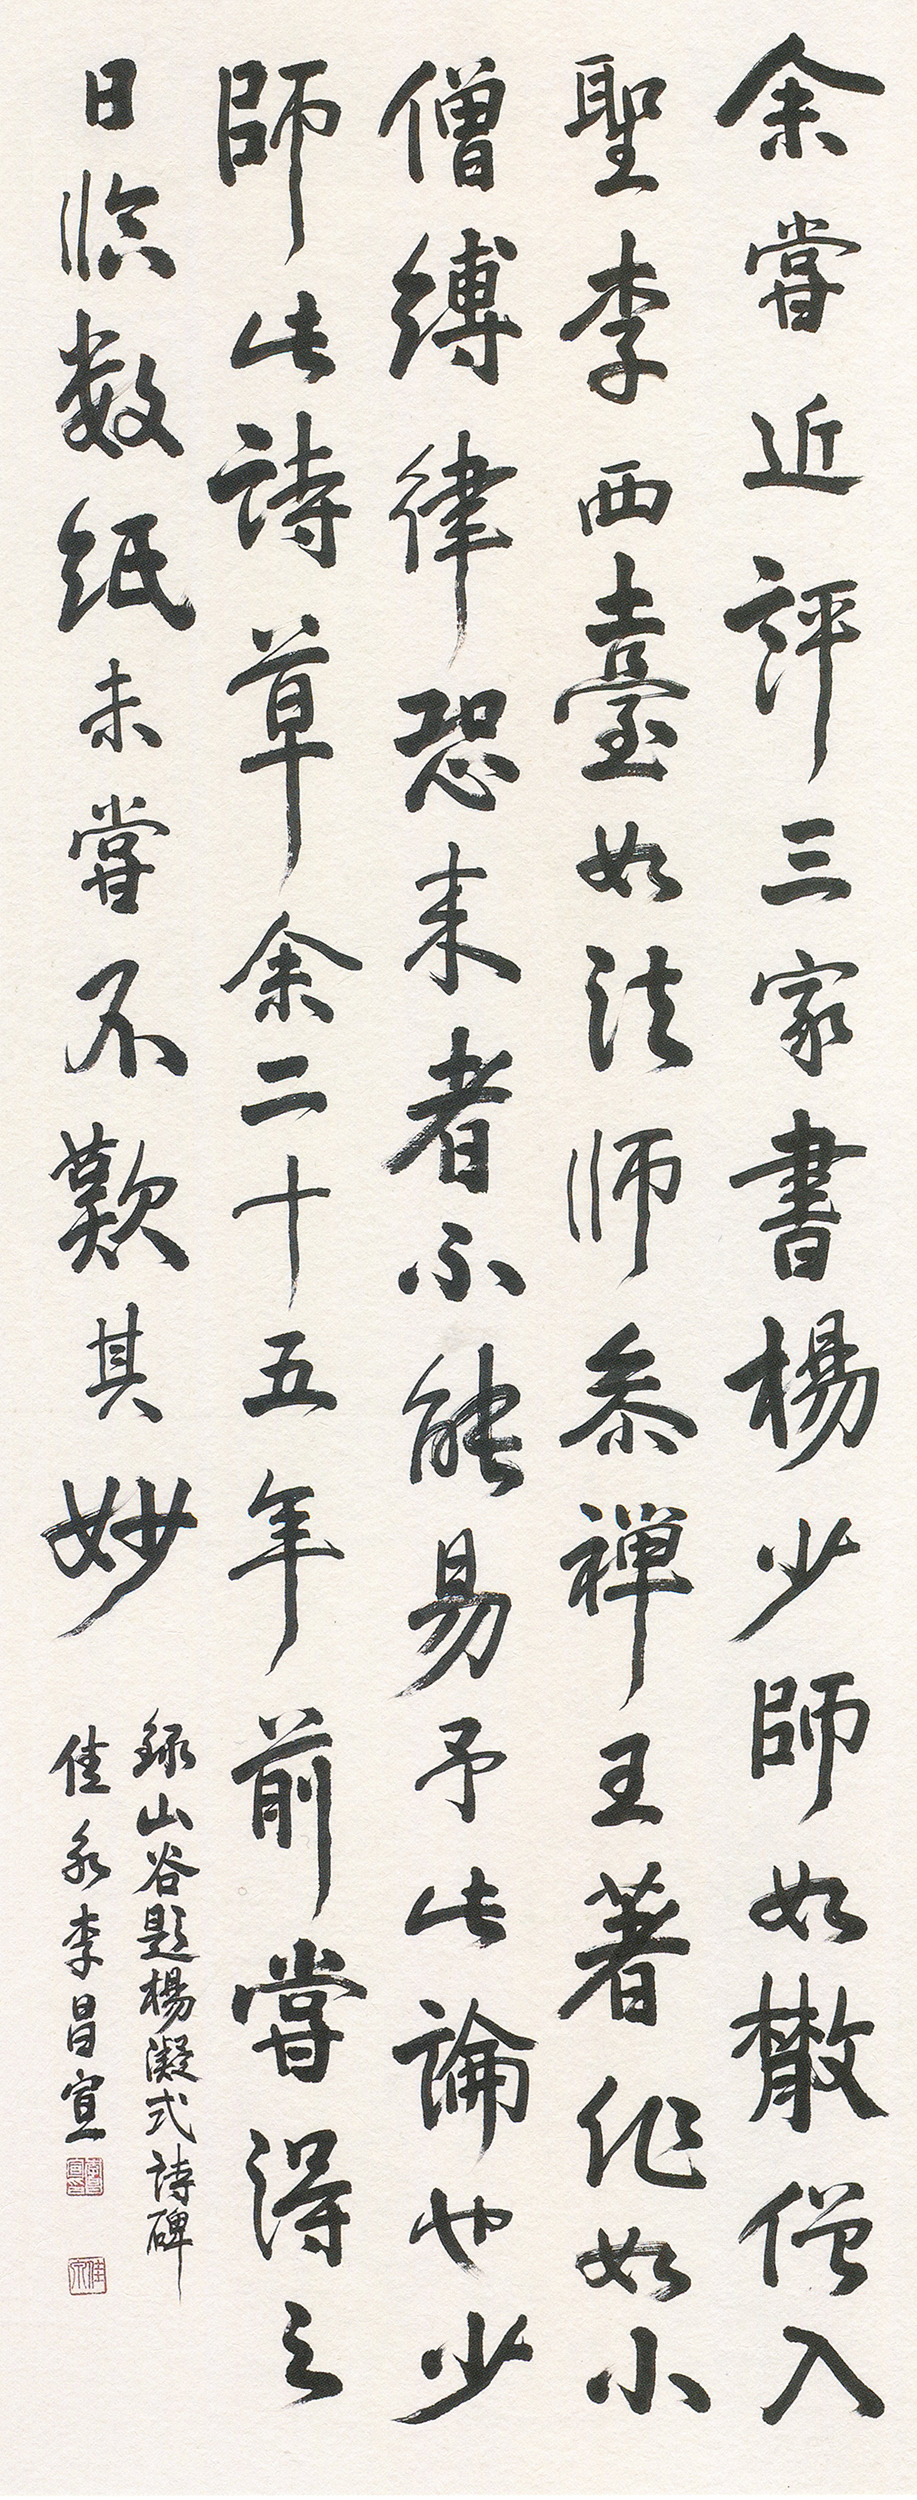 余嘗近評三家書楊少師如散僧入
聖李西臺如法师參禅王著作如小
僧縛律恐来者不能易予此論也少
師此詩草余二十五年前嘗得之
日临数纸未嘗不歎其妙
録山谷題楊凝式詩碑
佳永李昌宣